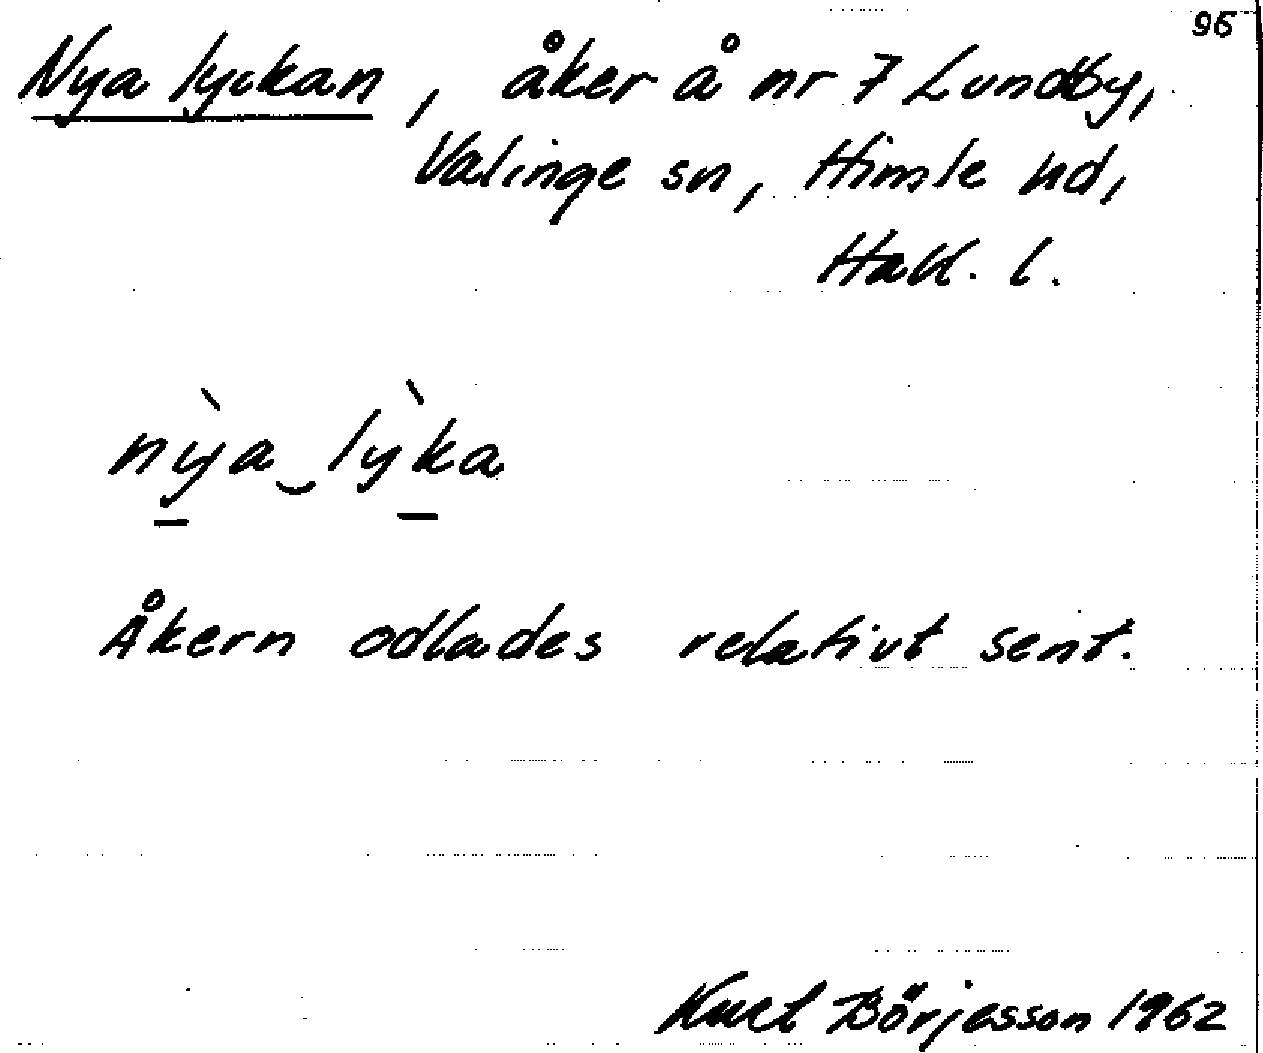 96
Nya lyckan, åker å nr 7 Lundby,
Valinge sn, Himle hd,
Hall. l.
nỳa‿lỳka
Åkern odlades relativt sent.
Kurt Börjesson 1962